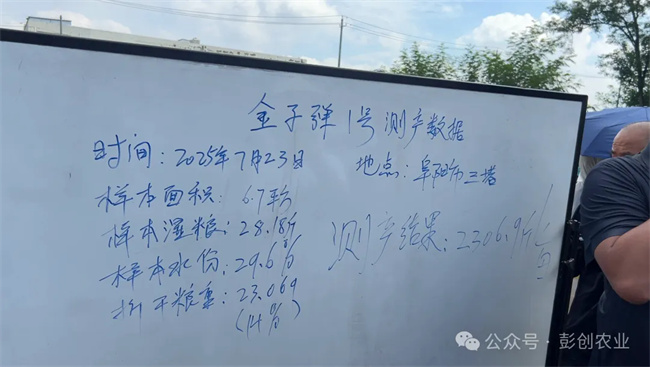 金子弹1号测产数据
时间：2025年7月23日
地点：阜阳市三塔
样本面积：6.7平方
样本湿粮：28.18斤
样本水份：29.6%
折干粮重：23.069
(14%)
测产结果：2306.9斤/亩
公众号·彭创农业